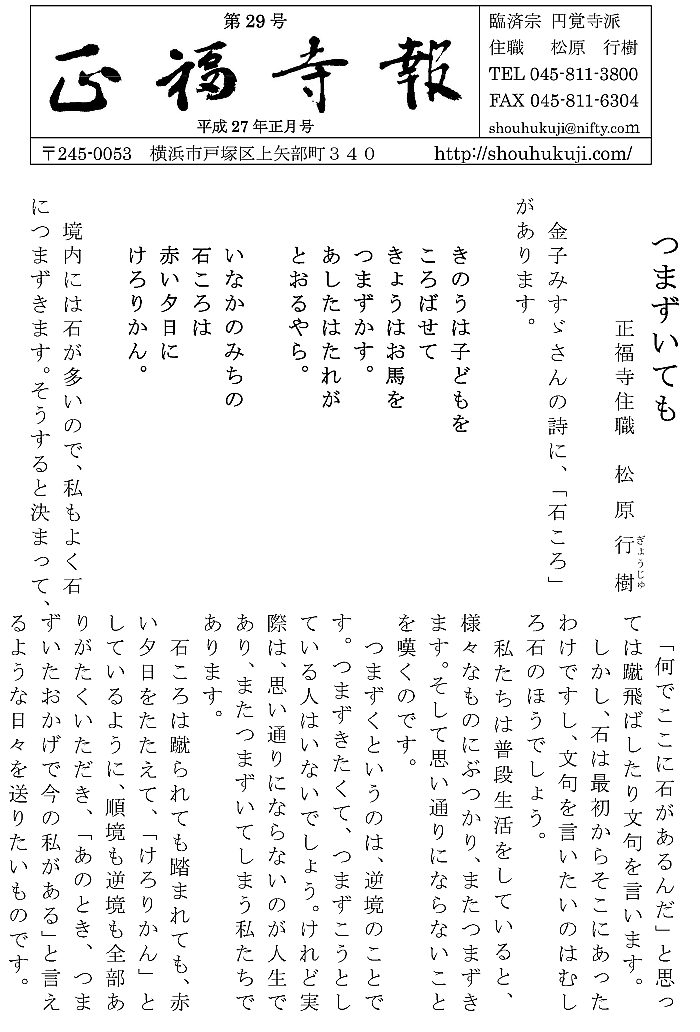 第29号
正福寺報
平成27年正月号
臨済宗 円覚寺派
住職 松原 行樹
TEL 045-811-3800
FAX 045-811-6304
shouhukuji@nifty.com
〒245-0053 横浜市戸塚区上矢部町340 http://shouhukuji.com/
つまずいても
正福寺住職 松原行樹
ぎょうじゅ
金子みすゞさんの詩に、「石ころ」
があります。
きのうは子どもを
ころばせて
きょうはお馬を
つまずかす。
あしたはたれが
とおるやら。
いなかのみちの
石ころは
赤い夕日に
けろりかん。
境内には石が多いので、私もよく石
につまずきます。そうすると決まって、
「何でここに石があるんだ」と思っ
ては蹴飛ばしたり文句を言います。
しかし、石は最初からそこにあった
わけですし、文句を言いたいのはむし
ろ石のほうでしょう。
私たちは普段生活をしていると、
様々なものにぶつかり、またつまずき
ます。そして思い通りにならないこと
を嘆くのです。
つまずくというのは、逆境のことで
す。つまずきたくて、つまずこうとし
ている人はいないでしょう。けれど実
際は、思い通りにならないのが人生で
あり、またつまずいてしまう私たちで
あります。
石ころは蹴られても踏まれても、赤
い夕日をたたえて、「けろりかん」と
しているように、順境も逆境も全部あ
りがたくいただき、「あのとき、つま
ずいたおかげで今の私がある」と言え
るような日々を送りたいものです。